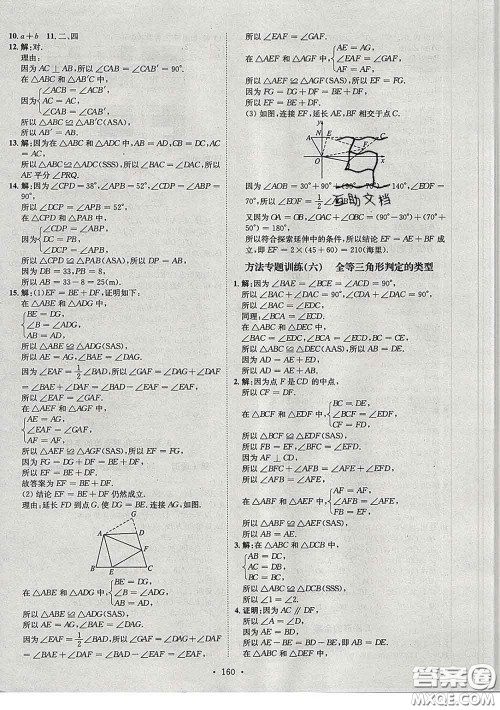 10. a+b 11. 二、四
12. 解:对.
理由:
因为 AC ⊥ AB',所以 ∠CAB = ∠CAB' = 90°.
在 △ABC 和 △AB'C 中,
∠ACB = ∠ACB',
AC = AC,
∠CAB = ∠CAB',
所以 △ABC ≌ △AB'C(ASA),
所以 AB' = AB.
13. 解:因为在 △ADC 和 △ABC 中,AB = AD,CD = BC,AC = AC,
所以 △ADC ≌ △ABC(SSS),所以 ∠BAC = ∠DAC,所以
AE 平分 ∠PRQ.
14. 解:因为 ∠CPD = 38°,∠APB = 52°,∠CDP = ∠ABP = 90°,
所以 ∠DCP = ∠APB = 52°.
在 △CPD 和 △PAB 中,
因为
所以 △CPD ≌ △PAB(ASA),
所以 DP = AB.
因为 DB = 33,PB = 8,
所以 AB = 33-8 = 25(m).
15. 解:(1)EF = BE + DF,证明如下:
在 △ABE 和 △ADG 中,
BE = DG,
∠B = ∠ADG,
AB = AD,
所以 △ABE ≌ △ADG(SAS),
所以 AE = AG,∠BAE = ∠DAG.
因为 ∠EAF = 1/2 ∠BAD,所以 ∠GAF = ∠DAG + ∠DAF =
∠BAE + ∠DAF = ∠BAD - ∠EAF = ∠EAF,
所以 ∠EAF = ∠GAF.
在 △AEF 和 △AGF 中,
AE = AG,
∠EAF = ∠GAF,
AF = AF,
所以 △AEF ≌ △AGF(SAS),所以 EF = FG.
因为 FG = DG + DF = BE + DF,
所以 EF = BE + DF.
故答案为 EF = BE + DF.
(2) 结论 EF = BE + DF 仍然成立.
理由:延长 FD 到点 G. 使 DG = BE. 连接 AG,如图.
G
A
D
F
B
E
C
在 △ABE 和 △ADG 中,
BE = DG,
∠B = ∠ADG,
AB = AD,
所以 △ABE ≌ △ADG(SAS),
所以 AE = AG,∠BAE = ∠DAG.
因为 ∠EAF = 1/2 ∠BAD,所以 ∠GAF = ∠DAG +
∠DAF = ∠BAE + ∠DAF = ∠BAD - ∠EAF = ∠EAF,
所以 ∠EAF = ∠GAF.
在 △AEF 和 △AGF 中,
AE = AG,
∠EAF = ∠GAF,
AF = AF,
所以 △AEF ≌ △AGF(SAS),所以 EF = FG.
因为 FG = DG + DF = BE + DF,
所以 EF = BE + DF.
(3) 如图,连接 EF,延长 AE,BF 相交于点 C.
因为 ∠AOB = 30° + 90° + (90° - 70°) = 140°,∠EOF =
70°,所以 ∠EOF = 1/2 ∠AOB.
互助文档
又因为 OA = OB,∠OAC + ∠OBC = (90° - 30°) + (70° +
50°) = 180°,
所以符合探索延伸中的条件,所以结论 EF = AE + BF 成
立,即 EF = 2×(45 + 60) = 210(海里).
方法专题训练(六) 全等三角形判定的类型
1. 解:因为 ∠BAE = ∠BCE = ∠ACD = 90°,
所以 ∠BCA = ∠ECD.
同理,∠BAC = ∠DEC.
在 △ABC 和 △EDC 中,∠BCA = ∠ECD,AC = CE,
∠BAC = ∠DEC,所以 △ABC ≌ △EDC(ASA),
所以 AB = DE.
2. 解:因为点 F 是 CD 的中点,
所以 CF = DF.
在 △BCF 和 △EDF 中,
BC = DE,
∠BCF = ∠EDF,
CF = DF,
所以 △BCF ≌ △EDF(SAS),
所以 ∠BFC = ∠EFD,BF = EF.
因为 AF ⊥ CD,
所以 ∠BFC + ∠AFB = ∠AFE + ∠EFD = 90°,
所以 ∠AFB = ∠AFE.
在 △ABF 和 △AEF 中,
BF = EF,
∠AFB = ∠AFE,
AF = AF,
所以 △ABF ≌ △AEF(SAS),
所以 ∠BAF = ∠EAF.
3. 解:在 △ACB 和 △DCB 中,
所以 △ACB ≌ △DCB
所以 ∠1 = ∠2.
4. 证明:因为 AC ∥ DF,
所以 ∠A = ∠D.
因为 AB = DE,
所以 AE - BE = BD - BE,即
· 160 ·
答案圈